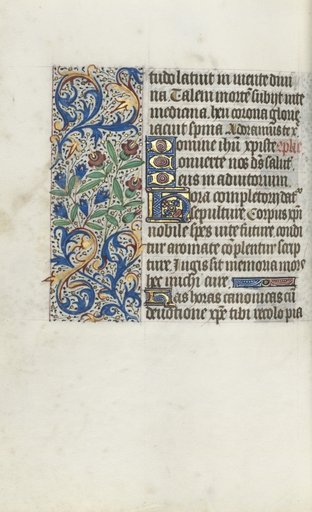 tudo latuit in mente diui
na. Talem mortē subijt uite
mediana. heu corona glorie
iacuit spinta. Adoramus te x
Domine ihū xp̄iste
Conuerte nos ds̄ salut̄
Deus in adiutorium
Hora completorij dat̄
sepulture. Corpus xp̄i
nobile spes uite future condi
tur aromate cōplentur scrip
ture. Iugis sit memoria mors
hec michi cure.
Has horas canonicas cū
deuotione xp̄e tibi recolo pia